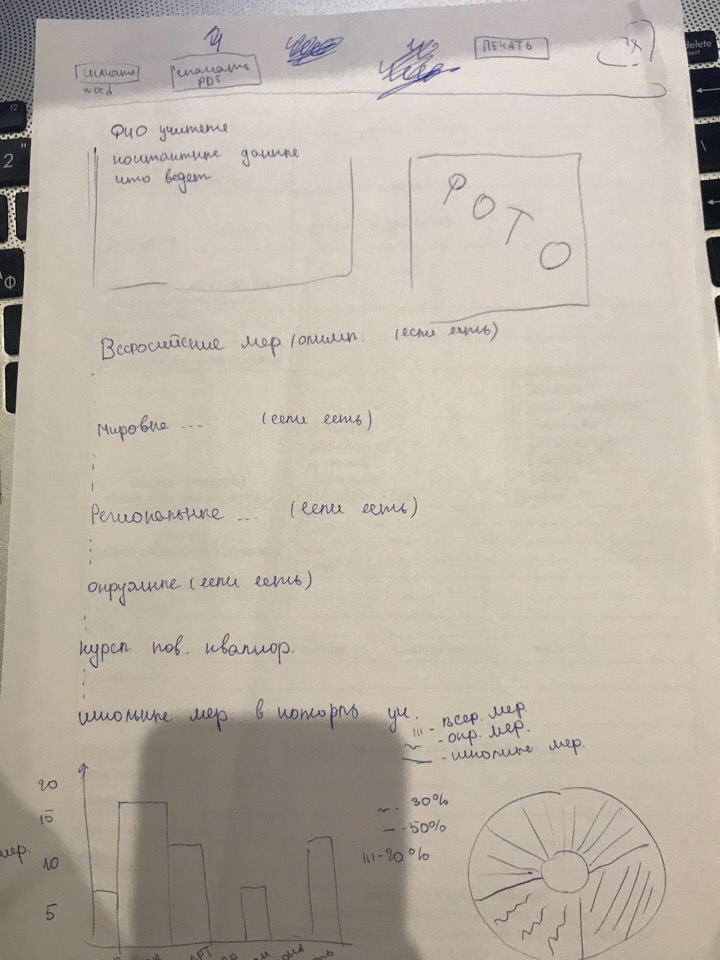 скачать
word
скачать
PDF
ПЕЧАТЬ
ФИО учителя
контактные данные
что ведет
ФОТО
Всероссийские мер./олимп. (если есть)
Мировые ... (если есть)
Региональные ... (если есть)
окружные (если есть)
курсы пов. квалиф.
школьные мер. в которых уч.
ııı - всер. мер.
~ - окр. мер.
— - школьные мер.
20
15
10
5
~ - 30%
— - 50%
ııı - 20%
мер.